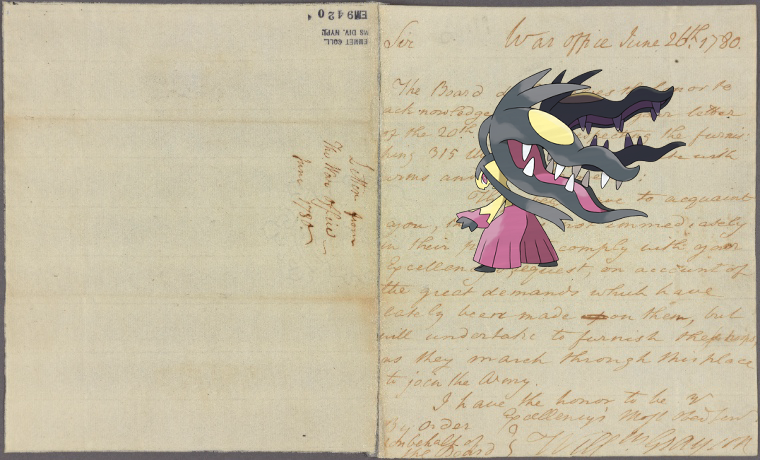 EM9420
EMMET COLL.
MS DIV. NYPL
Letter from
The War office
June 1780.
Sir War office June 26th. 1780.
The Board honor to
acknowledge letter
of the 20th the furnis-
hing 315 with
arms an
to acquaint
you, immediately
in their comply with your
Excellen request, on account of
the great demands which have
lately been made upon them, but
will undertake to furnish
as they march through this place
to join the Army.
I have the honor to be
Excellency's Most Obed Serv
By order
on behalf of
the Board } Will Grayson